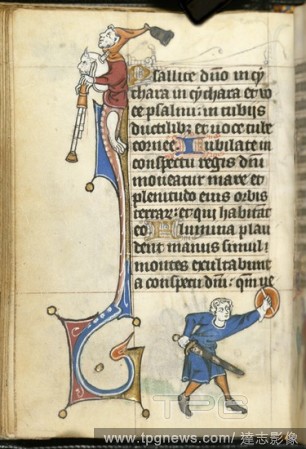 Psallite dño in cy
thara in cythara et vo
ce psalmi: in tubijs
ductilibȝ et uoce tube
cornee. Iubilate in
conspectu regis dñi
moueatur mare et
plenitudo eius orbis
terrarͫ: et qui habitāt
eo. Flumina plau
dent manus simul:
montes exultabunt
a conspectu dñi: qm̄ ve
TPG
www.tpgnews.com/達志影像